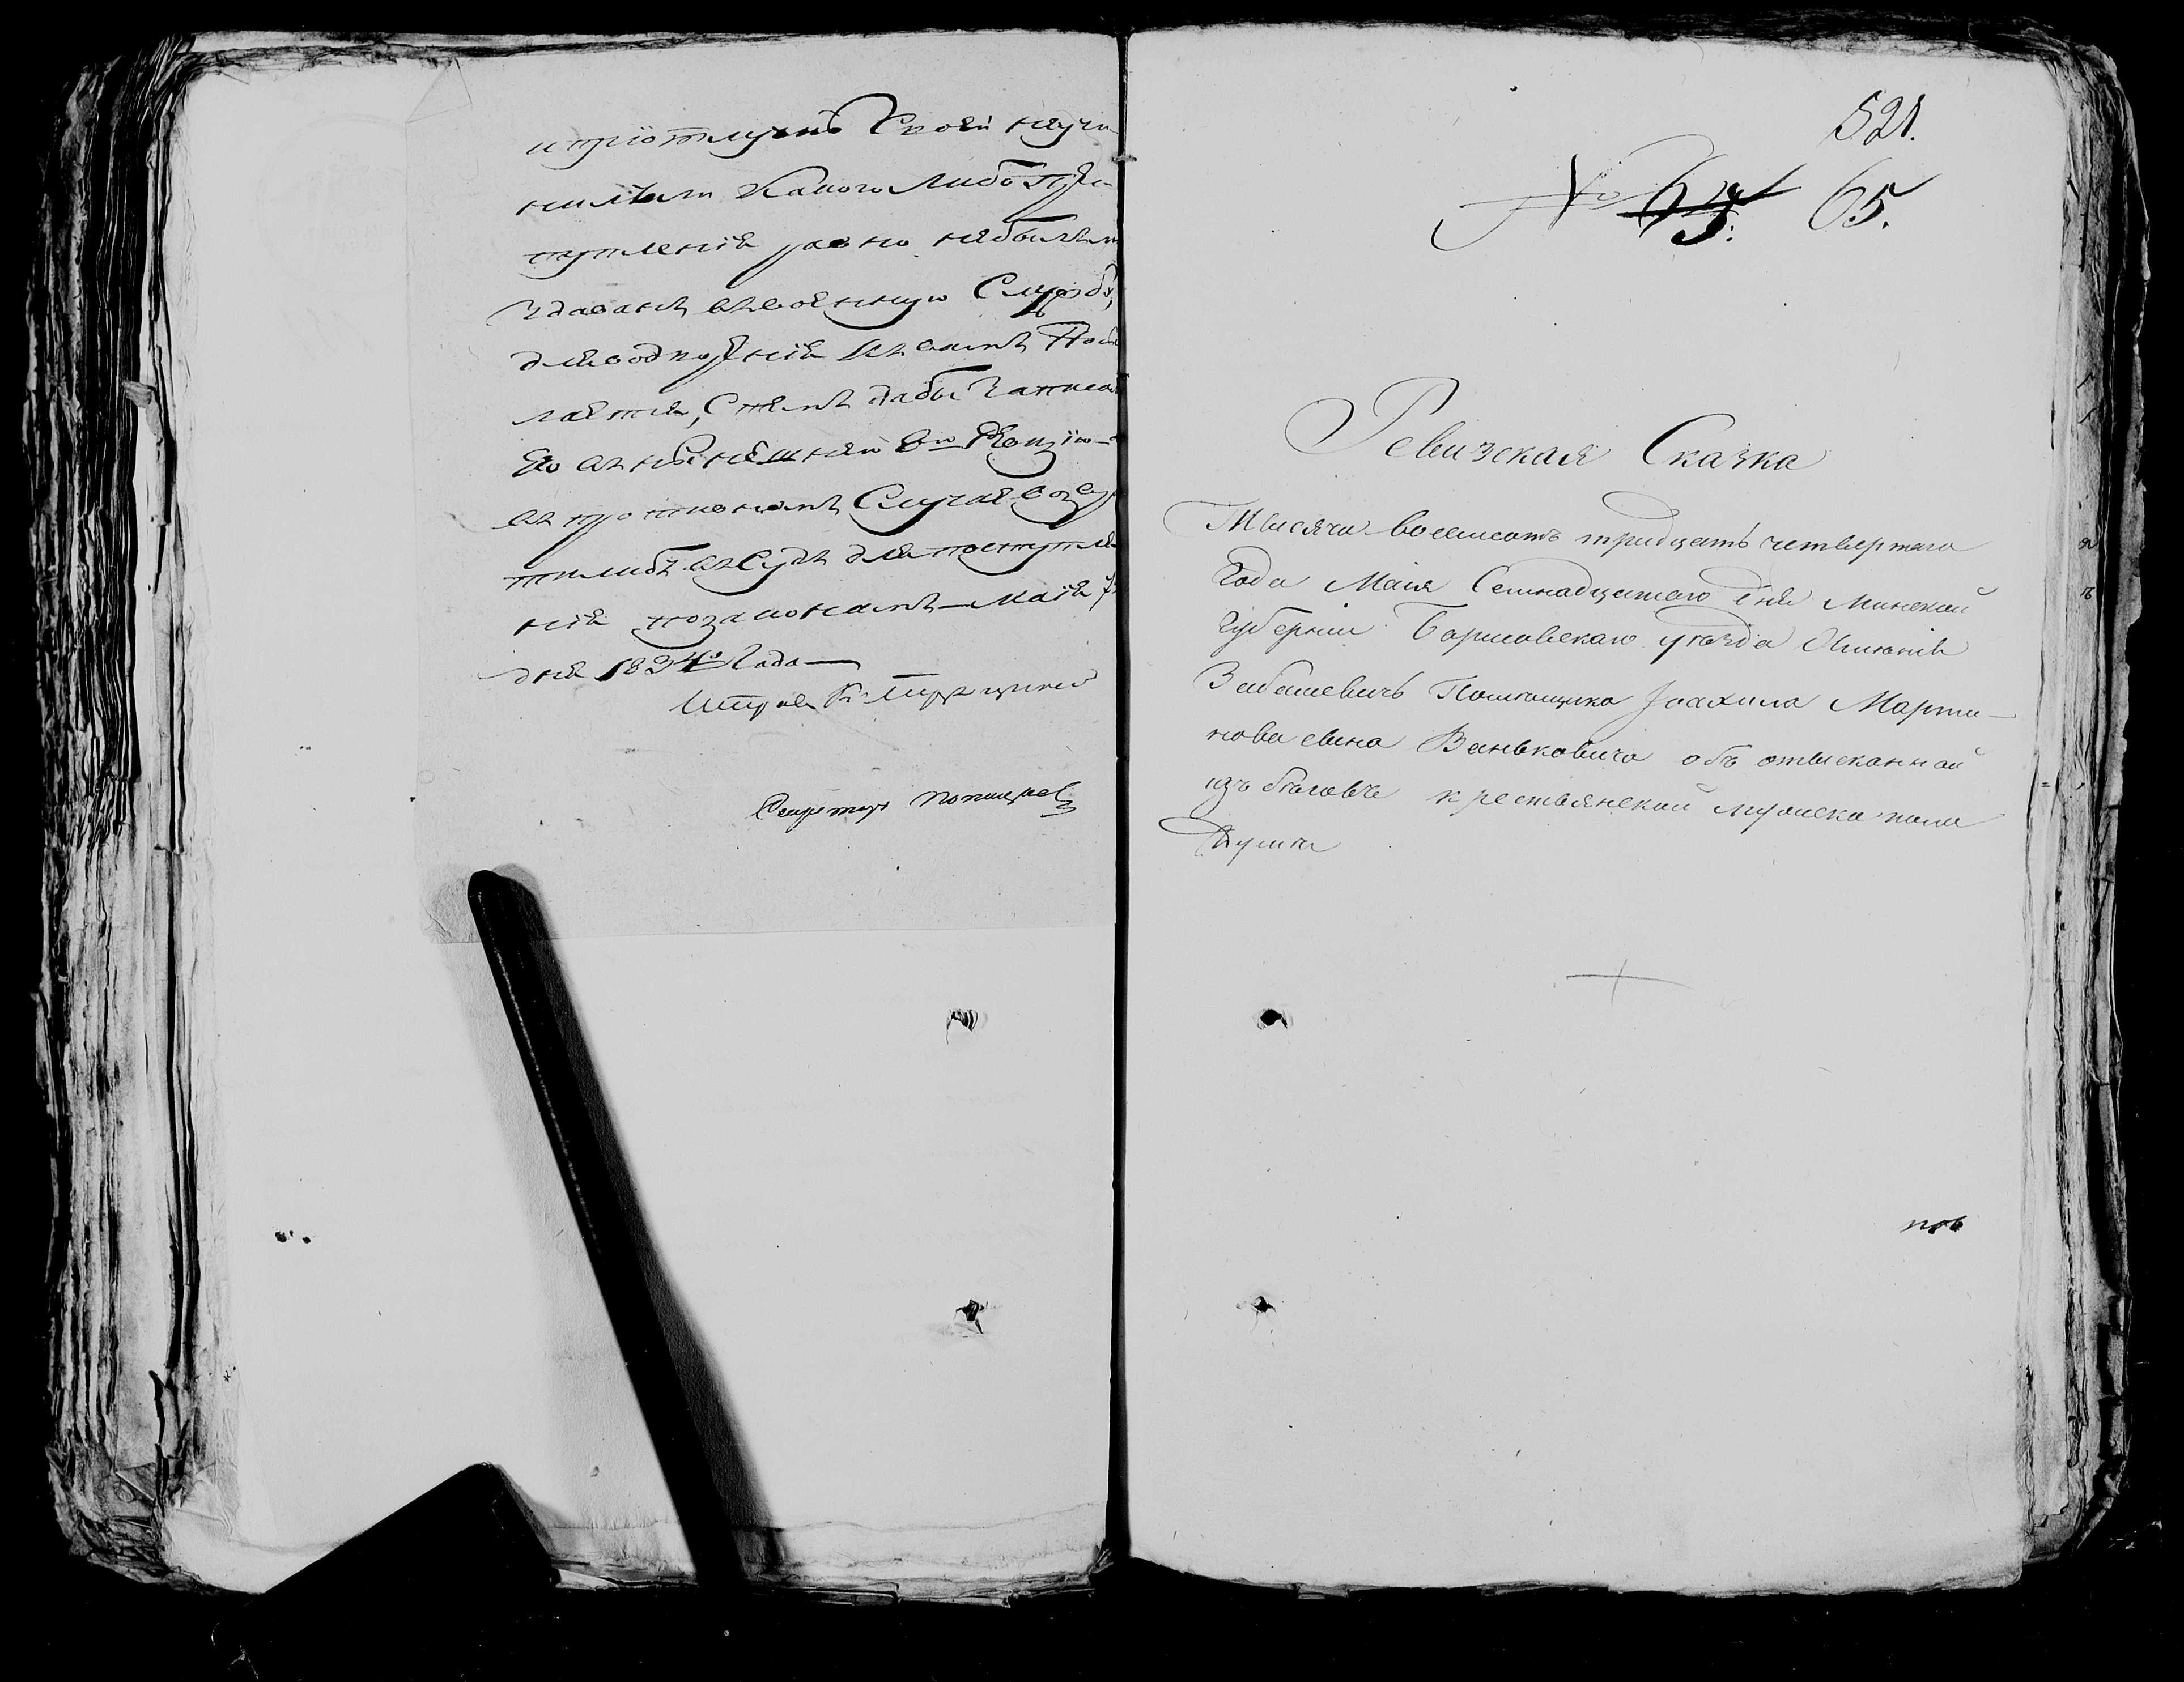 и при отлучкѣ Своей неучи
нилъ ли Какого Либо Прес
тупленія равно небылъ ли
зданъ въ военную Службу,
для водворенія
лается, Стемъ дабы Записа
Его въ нынѣшнею 8ю Ревизію
въ противномъ Случае
въ Судъ для поступле
нія позаконамъ Маія
дня 1834го Года
Секретарь
521.
№ 65.
Ревизская Сказка
Тысяча восемсотъ тридцать четвертаго
Года Маія Семнадцатаго Дня Минской
Губерніи Борисовскаго уѣзда Имѣнія
Забашевичь Помѣщика Іоахима Марти-
нова сына Ваньковича объ отысканной
изъ бѣговъ крестьянской мужеска пола
Душѣ